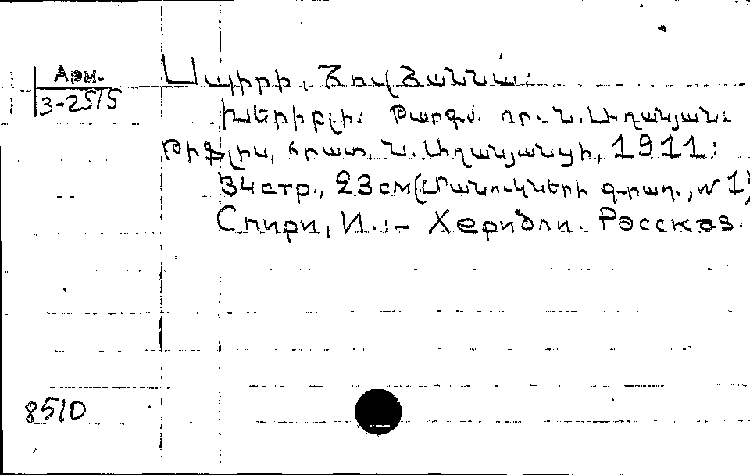 Арм.
3-2515
Սպիրի, Յովհաննա:
Խերիբլի: Թարգմ. Ն. Աղանյան:
Թիֆլիս, հրատ. Ն. Աղանյանցի, 1911:
34 стр., 23 см (Մանուկների գրադ., № 1)
Спири, И.:- Херибли. Рассказ.
8510